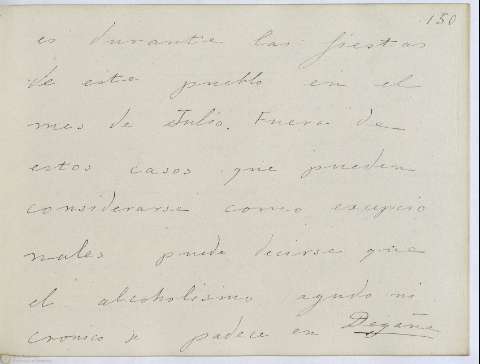 150
es durante las fiestas
de este pueblo en el
mes de Julio. Fuera de
estos casos que pueden
considerarse como excepcio
nales puede decirse que
el alcoholismo agudo ni
cronico se padece en Degaña